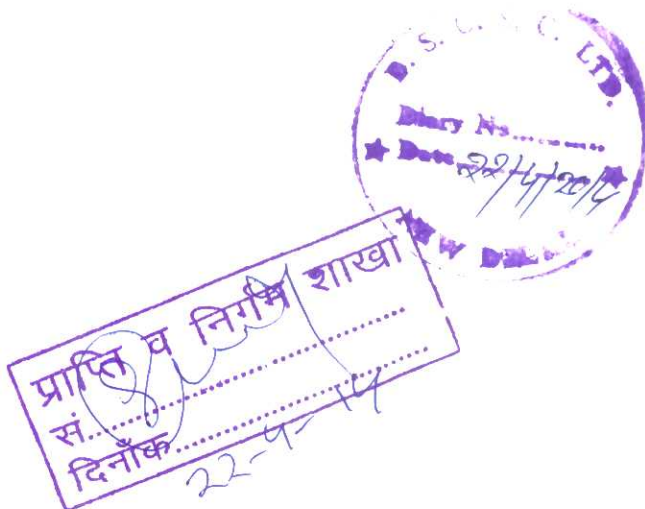 LTD.
Diary No..........
Date 22/4/2014
NEW DEL
प्राप्ति व निर्गम शाखा
सं..........................................
दिनाँक..........................................
22-4-14